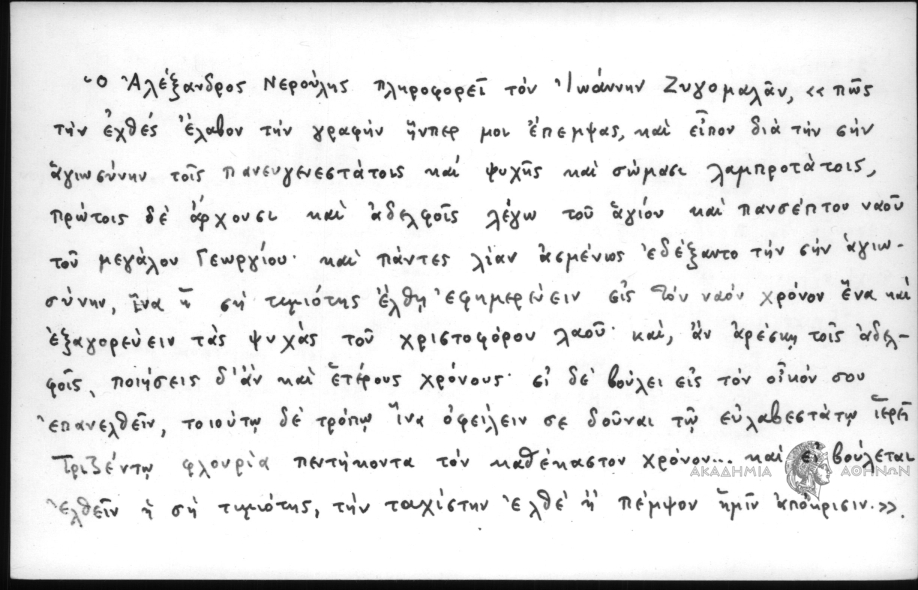 Ὁ Ἀλέξανδρος Νερούλης πληροφορεῖ τὸν Ἰωάννην Ζυγομαλᾶν, «πῶς
τὴν ἐχθές ἔλαβον τὴν γραφήν ἥνπερ μοι ἔπεμψας, καὶ εἶπον διὰ τὴν σήν
ἁγιωσύνην τοῖς πανευγενεστάτοις καί ψυχῆς καὶ σώμασι λαμπροτάτοις,
πρώτοις δὲ ἄρχουσι καὶ ἀδελφοῖς λέγω τοῦ ἁγίου καὶ πανσέπτου ναοῦ
τοῦ μεγάλου Γεωργίου· καὶ πάντες λίαν ἀσμένως ἐδέξαντο τὴν σὴν ἁγιω-
σύνην, ἵνα ἡ σὴ τιμιότης ἔλθῃ ἐφημερεύειν εἰς τὸν ναόν χρόνον ἕνα καὶ
ἐξαγορεύειν τὰς ψυχάς τοῦ χριστοφόρου λαοῦ· καὶ, ἂν ἀρέσκῃ τοῖς ἀδελ-
φοῖς, ποιήσεις δ'ἂν καὶ ἑτέρους χρόνους· εἰ δὲ βούλει εἰς τὸν οἶκόν σου
ἐπανελθεῖν, τοιούτῳ δὲ τρόπῳ ἵνα ὀφείλειν σε δοῦναι τῷ εὐλαβεστάτῳ ἱερεῖ
Τριζέντῳ φλουρία πεντήκοντα τὸν καθέκαστον χρόνον... καὶ εἰ βούλεται
ἐλθεῖν ἡ σή τιμιότης, τὴν ταχίστην ἐλθὲ ἢ πέμψον ἡμῖν ἀπόκρισιν.»
ΑΚΑΔΗΜΙΑ ΑΘΗΝΩΝ